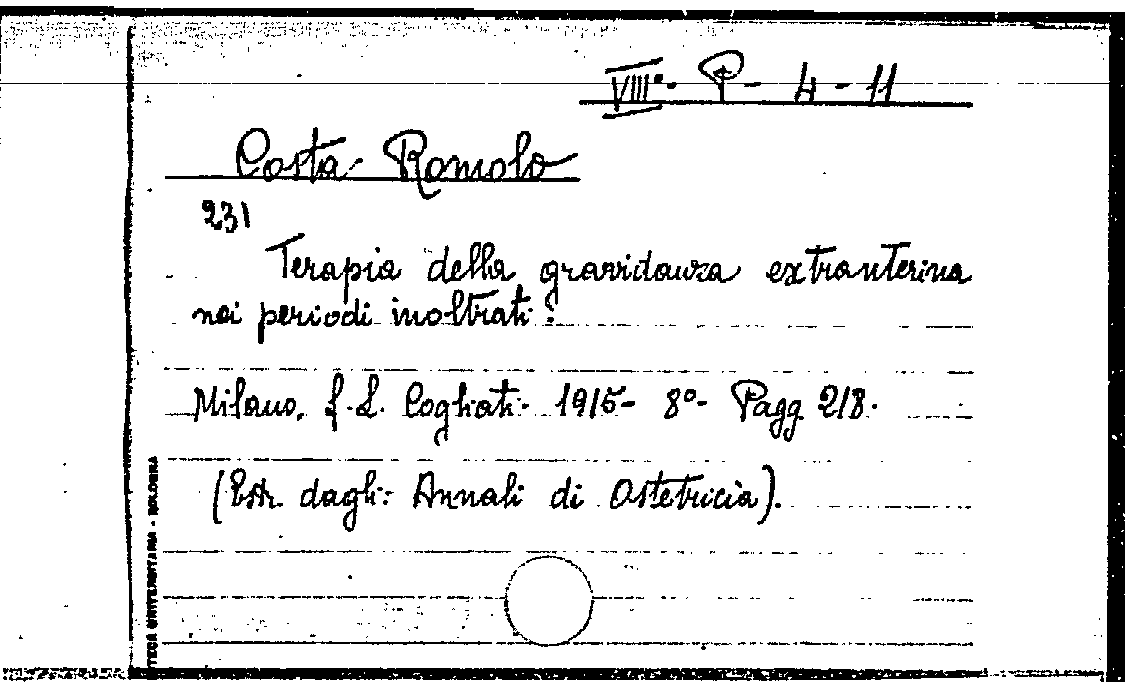 VIII°- P - 4 - 11
Costa Romolo
231
Terapia della gravidanza extrauterina
nei periodi inoltrati:
Milano, L.F. Cogliati. 1915- 8°- Pagg. 218.
(Estr. dagli: Annali di Ostetricia).
TECA UNIVERSITARIA - BOLOGNA